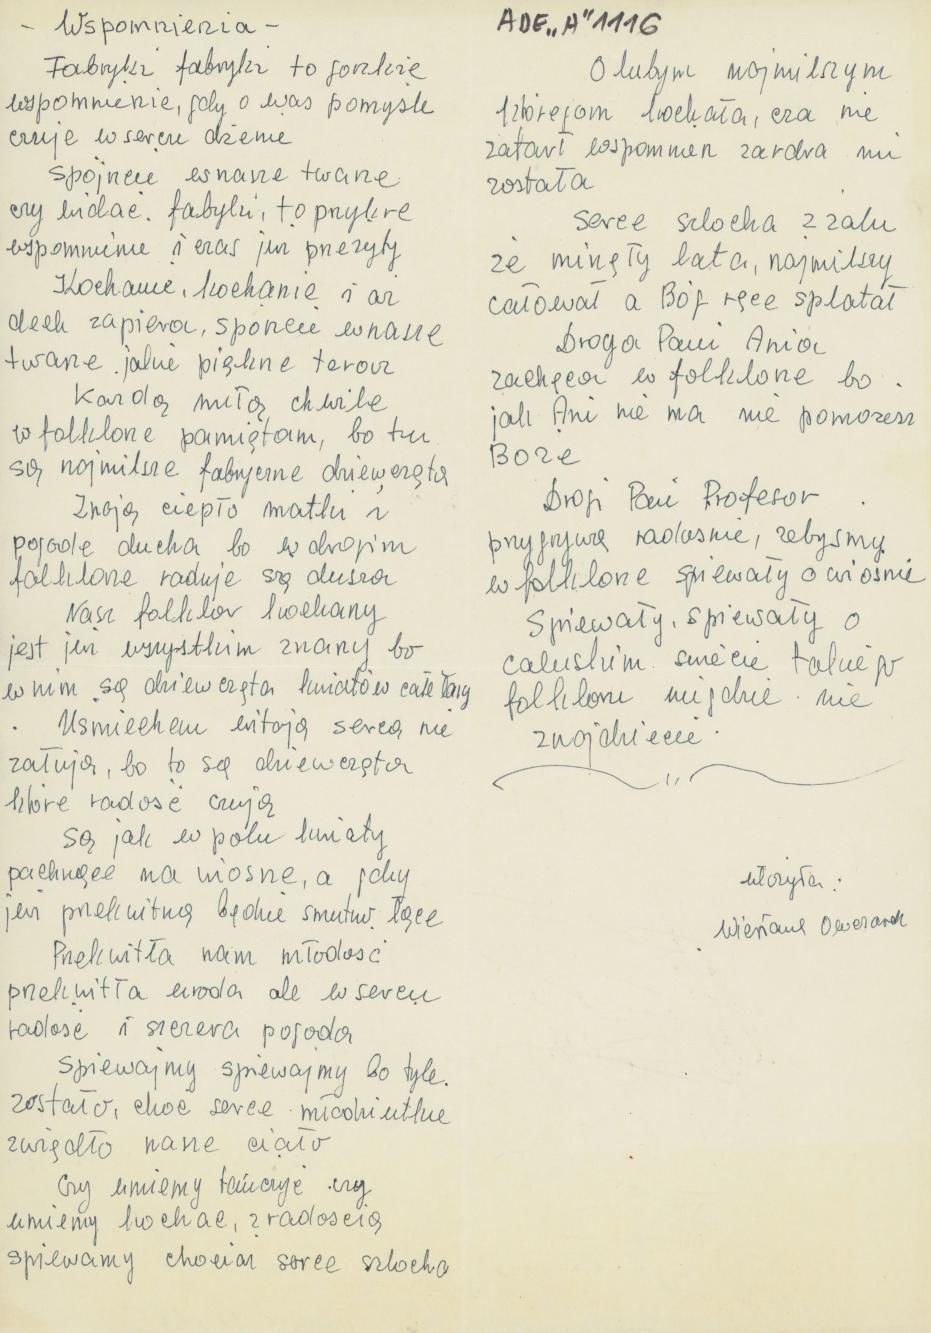 - Wspomnienia -
Fabryki fabryki to gorzkie
wspomnienie, gdy o was pomyśle
czuje w sercu drżenie
Spójrzcie w nasze twarze
czy widać. fabyki, to przykre
wspomnienie i czas już przeżyty
Kochanie, kochanie i aż
dech zapiera, spórzcie w nasze
twarze jakie piękne teraz
Każdą miłą chwile
w folklorze pamiętam, bo tu
są najmilsze fabryczne dziewczęta
Znają ciepło matki i
pogodę ducha bo w drogim
folklorze raduje się dusza
Nasz folklor kochany
jest już wszystkim znany bo
w nim są dziewczęta kwiatów całe łany
Usmiechem witają serca nie
załują, bo to są dziewczęta
które radość czują
Są jak w polu kwiaty
pachnące na wiosne, a gdy
już przekwitną będzie smutno łące
Przekwitła nam młodość
przekwitła uroda ale w sercu
radość i szczera pogoda
Spiewajmy spiewajmy bo tyle
zostało, choć serce młodziutkie
zwiędło nasze ciało
Czy umiemy tańczyć czy
umiemy kochać, z radością
spiewamy chociaż serce szlocha
ADE „A" 1116
O lubym najmilszym
któregom kochała, cza nie
zatarł wspomnień zadra mi
została
Serce szlocha z żalu
że minęły lata, najmilszy
całował a Bóg ręce splatał
Droga Pani Ania
zachęca w folklorze bo
jak Ani nie ma nie pomożesz
Boże
Drogi Pan Profesor
przygrywa radosnie, żebysmy
w folklorze spiewały o wiosnie
Spiewały, spiewały o
caluskim swiecie takiego
folkloru nigdzie nie
znajdziecie
ułożyła:
Wiesława Owczarek